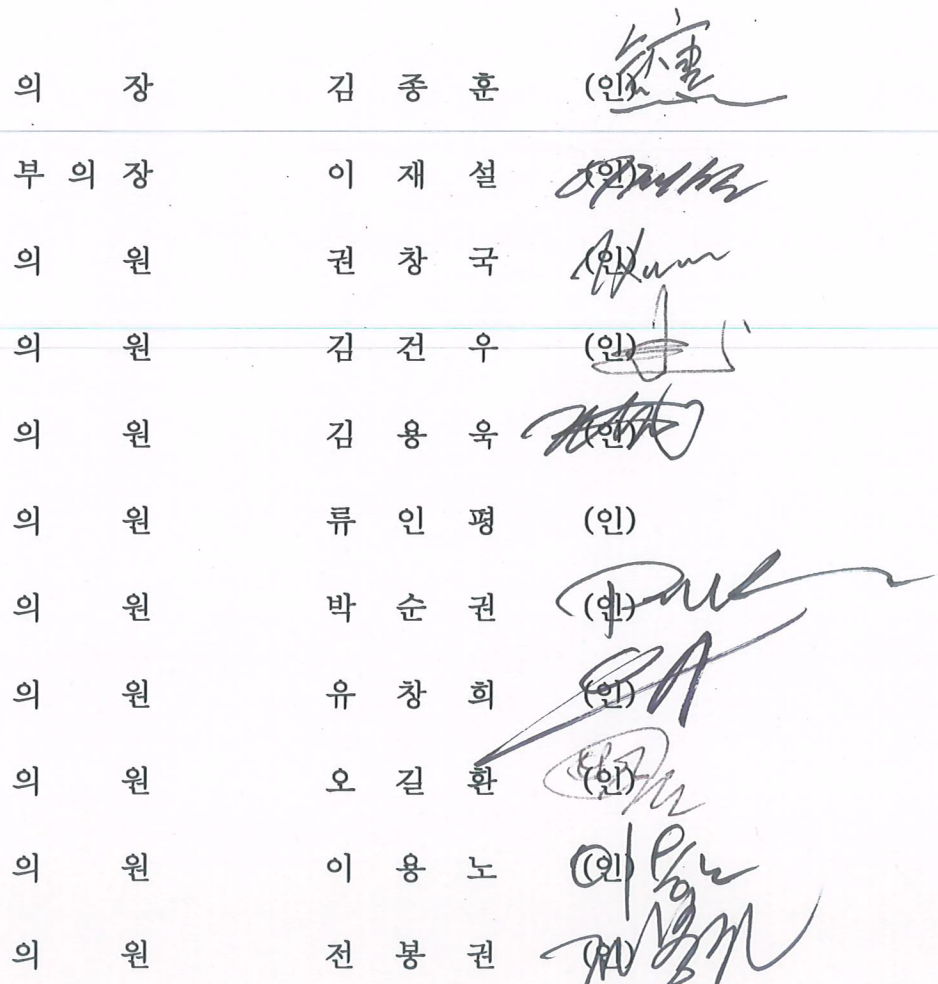 의 장 김 종 훈 (인)
부 의 장 이 재 설 (인)
의 원 권 창 국 (인)
의 원 김 건 우 (인)
의 원 김 용 욱 (인)
의 원 류 인 평 (인)
의 원 박 순 권 (인)
의 원 유 창 희 (인)
의 원 오 길 환 (인)
의 원 이 용 노 (인)
의 원 전 봉 권 (인)